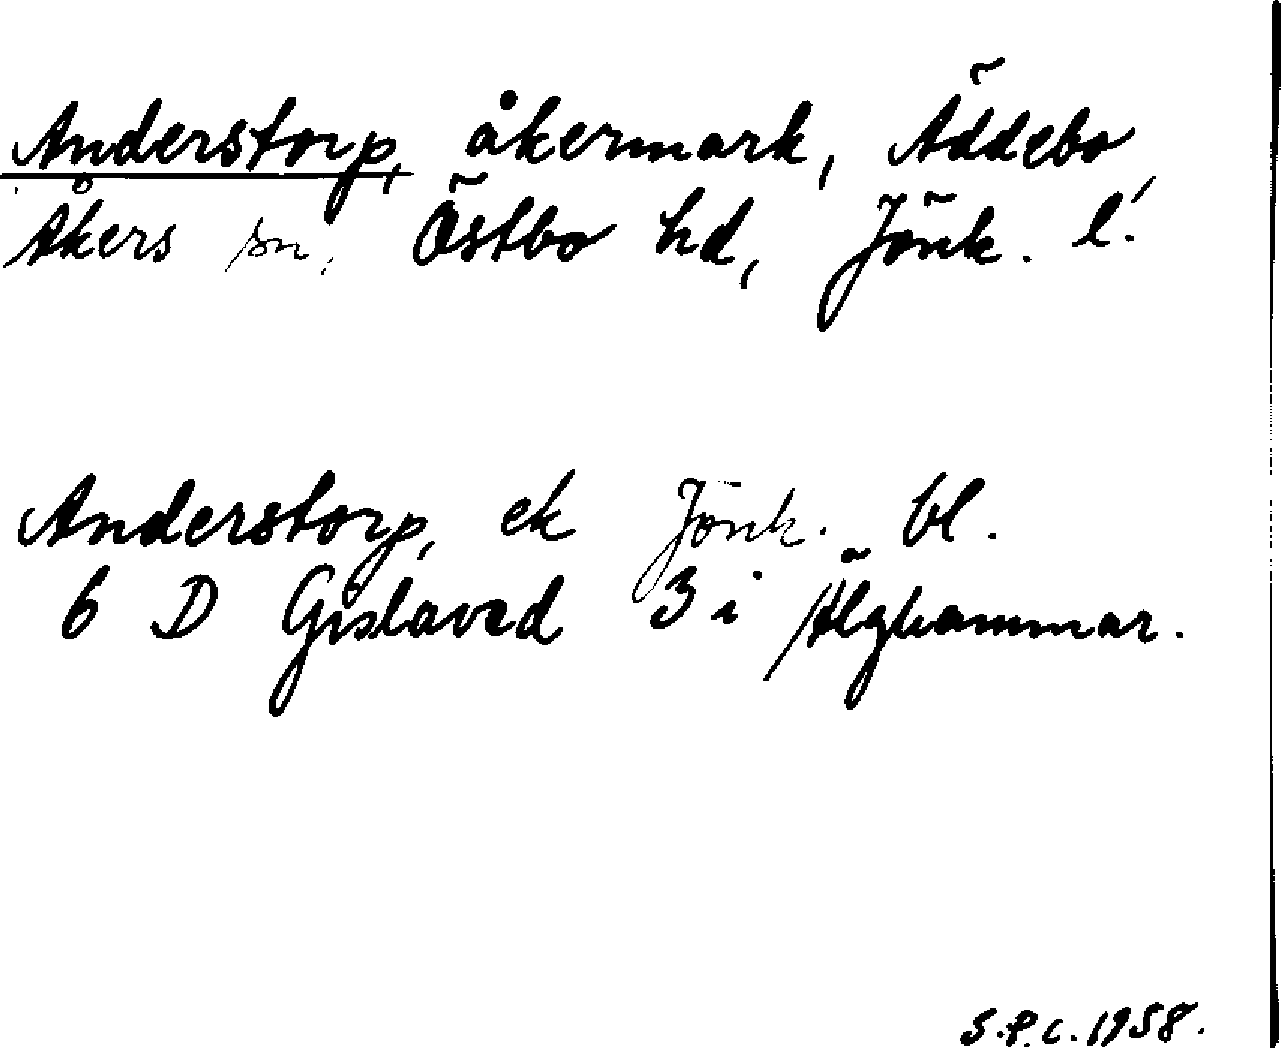 Anderstorp, åkermark, Äddebo
Åkers sn, Östbo hd, Jönk. l.
Anderstorp, ek Jönk. bl.
6 D Gislaved 3 i Älghammar.
S.P.C. 1958.